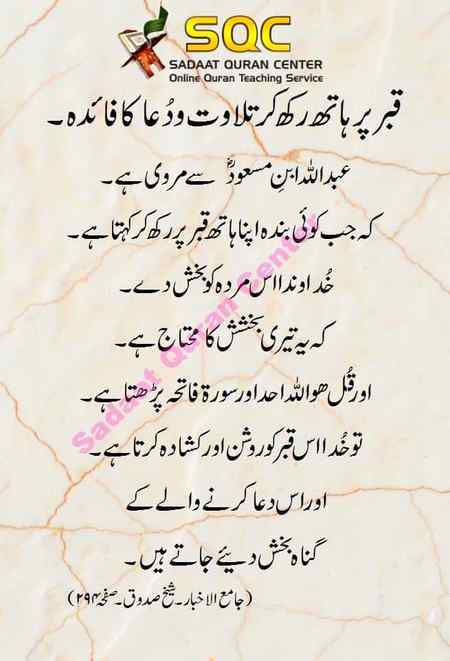 SQC
SADAAT QURAN CENTER
Online Quran Teaching Service
قبر پر ہاتھ رکھ کر تلاوت و دُعا کا فائدہ۔
عبداللہ ابنِ مسعودؓ سے مروی ہے۔
کہ جب کوئی بندہ اپنا ہاتھ قبر پر رکھ کر کہتا ہے۔
خُداوندا اس مردہ کو بخش دے۔
کہ یہ تیری بخشش کا محتاج ہے۔
اور قُل ھو اللہ احد اور سورۃ فاتحہ پڑھتا ہے۔
تو خُدا اس قبر کو روشن اور کشادہ کرتا ہے۔
اور اس دعا کرنے والے کے
گناہ بخش دیئے جاتے ہیں۔
(جامع الاخبار۔ شیخ صدوق۔ صفحہ ۲۹۴)
Sadaat Quran Center